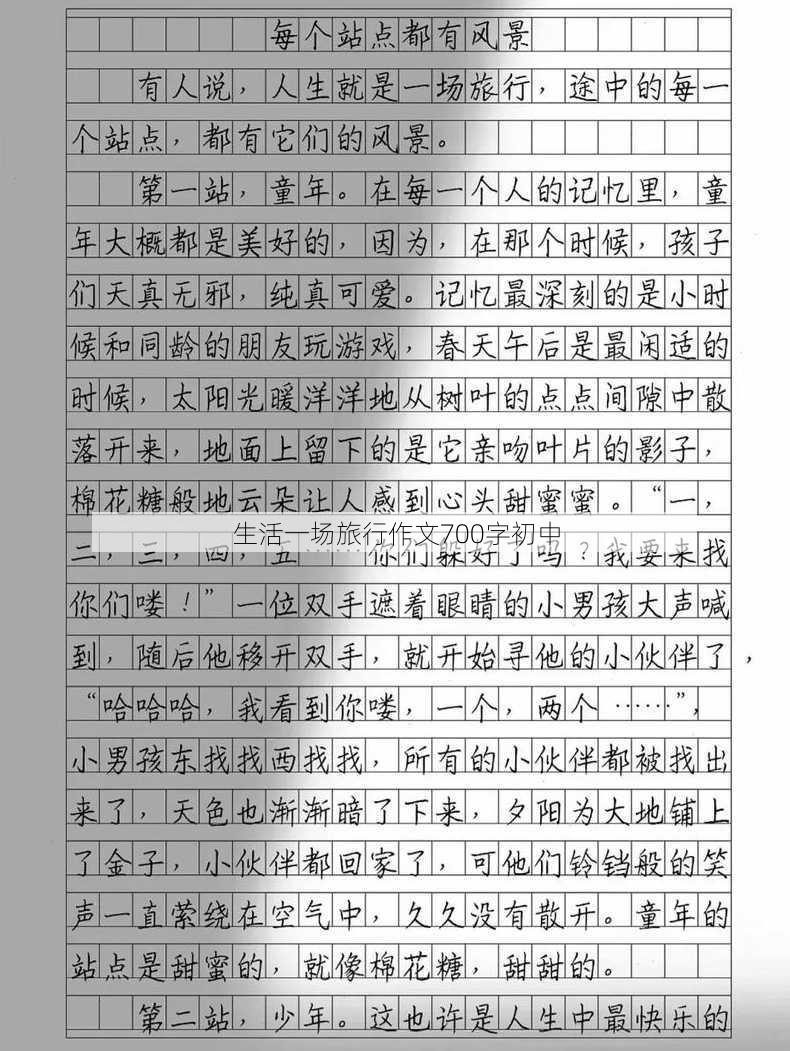 每个站点都有风景
有人说，人生就是一场旅行，途中的每一
个站点，都有它们的风景。
第一站，童年。在每一个人的记忆里，童
年大概都是美好的，因为，在那个时候，孩子
们天真无邪，纯真可爱。记忆最深刻的是小时
候和同龄的朋友玩游戏，春天午后是最闲适的
时候，太阳光暖洋洋地从树叶的点点间隙中散
落开来，地面上留下的是它亲吻叶片的影子，
棉花糖般地云朵让人感到心头甜蜜蜜。“一，
生活一场旅行作文700字初中
二，三，四，五……你们躲好了吗？我要来找
你们喽！”一位双手遮着眼睛的小男孩大声喊
到，随后他移开双手，就开始寻他的小伙伴了，
“哈哈哈，我看到你喽，一个，两个……”，
小男孩东找找西找找，所有的小伙伴都被找出
来了，天色也渐渐暗了下来，夕阳为大地铺上
了金子，小伙伴都回家了，可他们铃铛般的笑
声一直萦绕在空气中，久久没有散开。童年的
站点是甜蜜的，就像棉花糖，甜甜的。
第二站，少年。这也许是人生中最快乐的